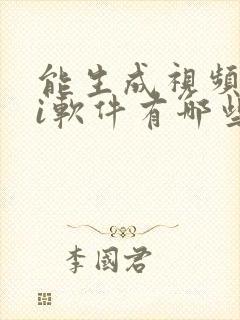 能生成視頻
i軟件有哪些
李國君